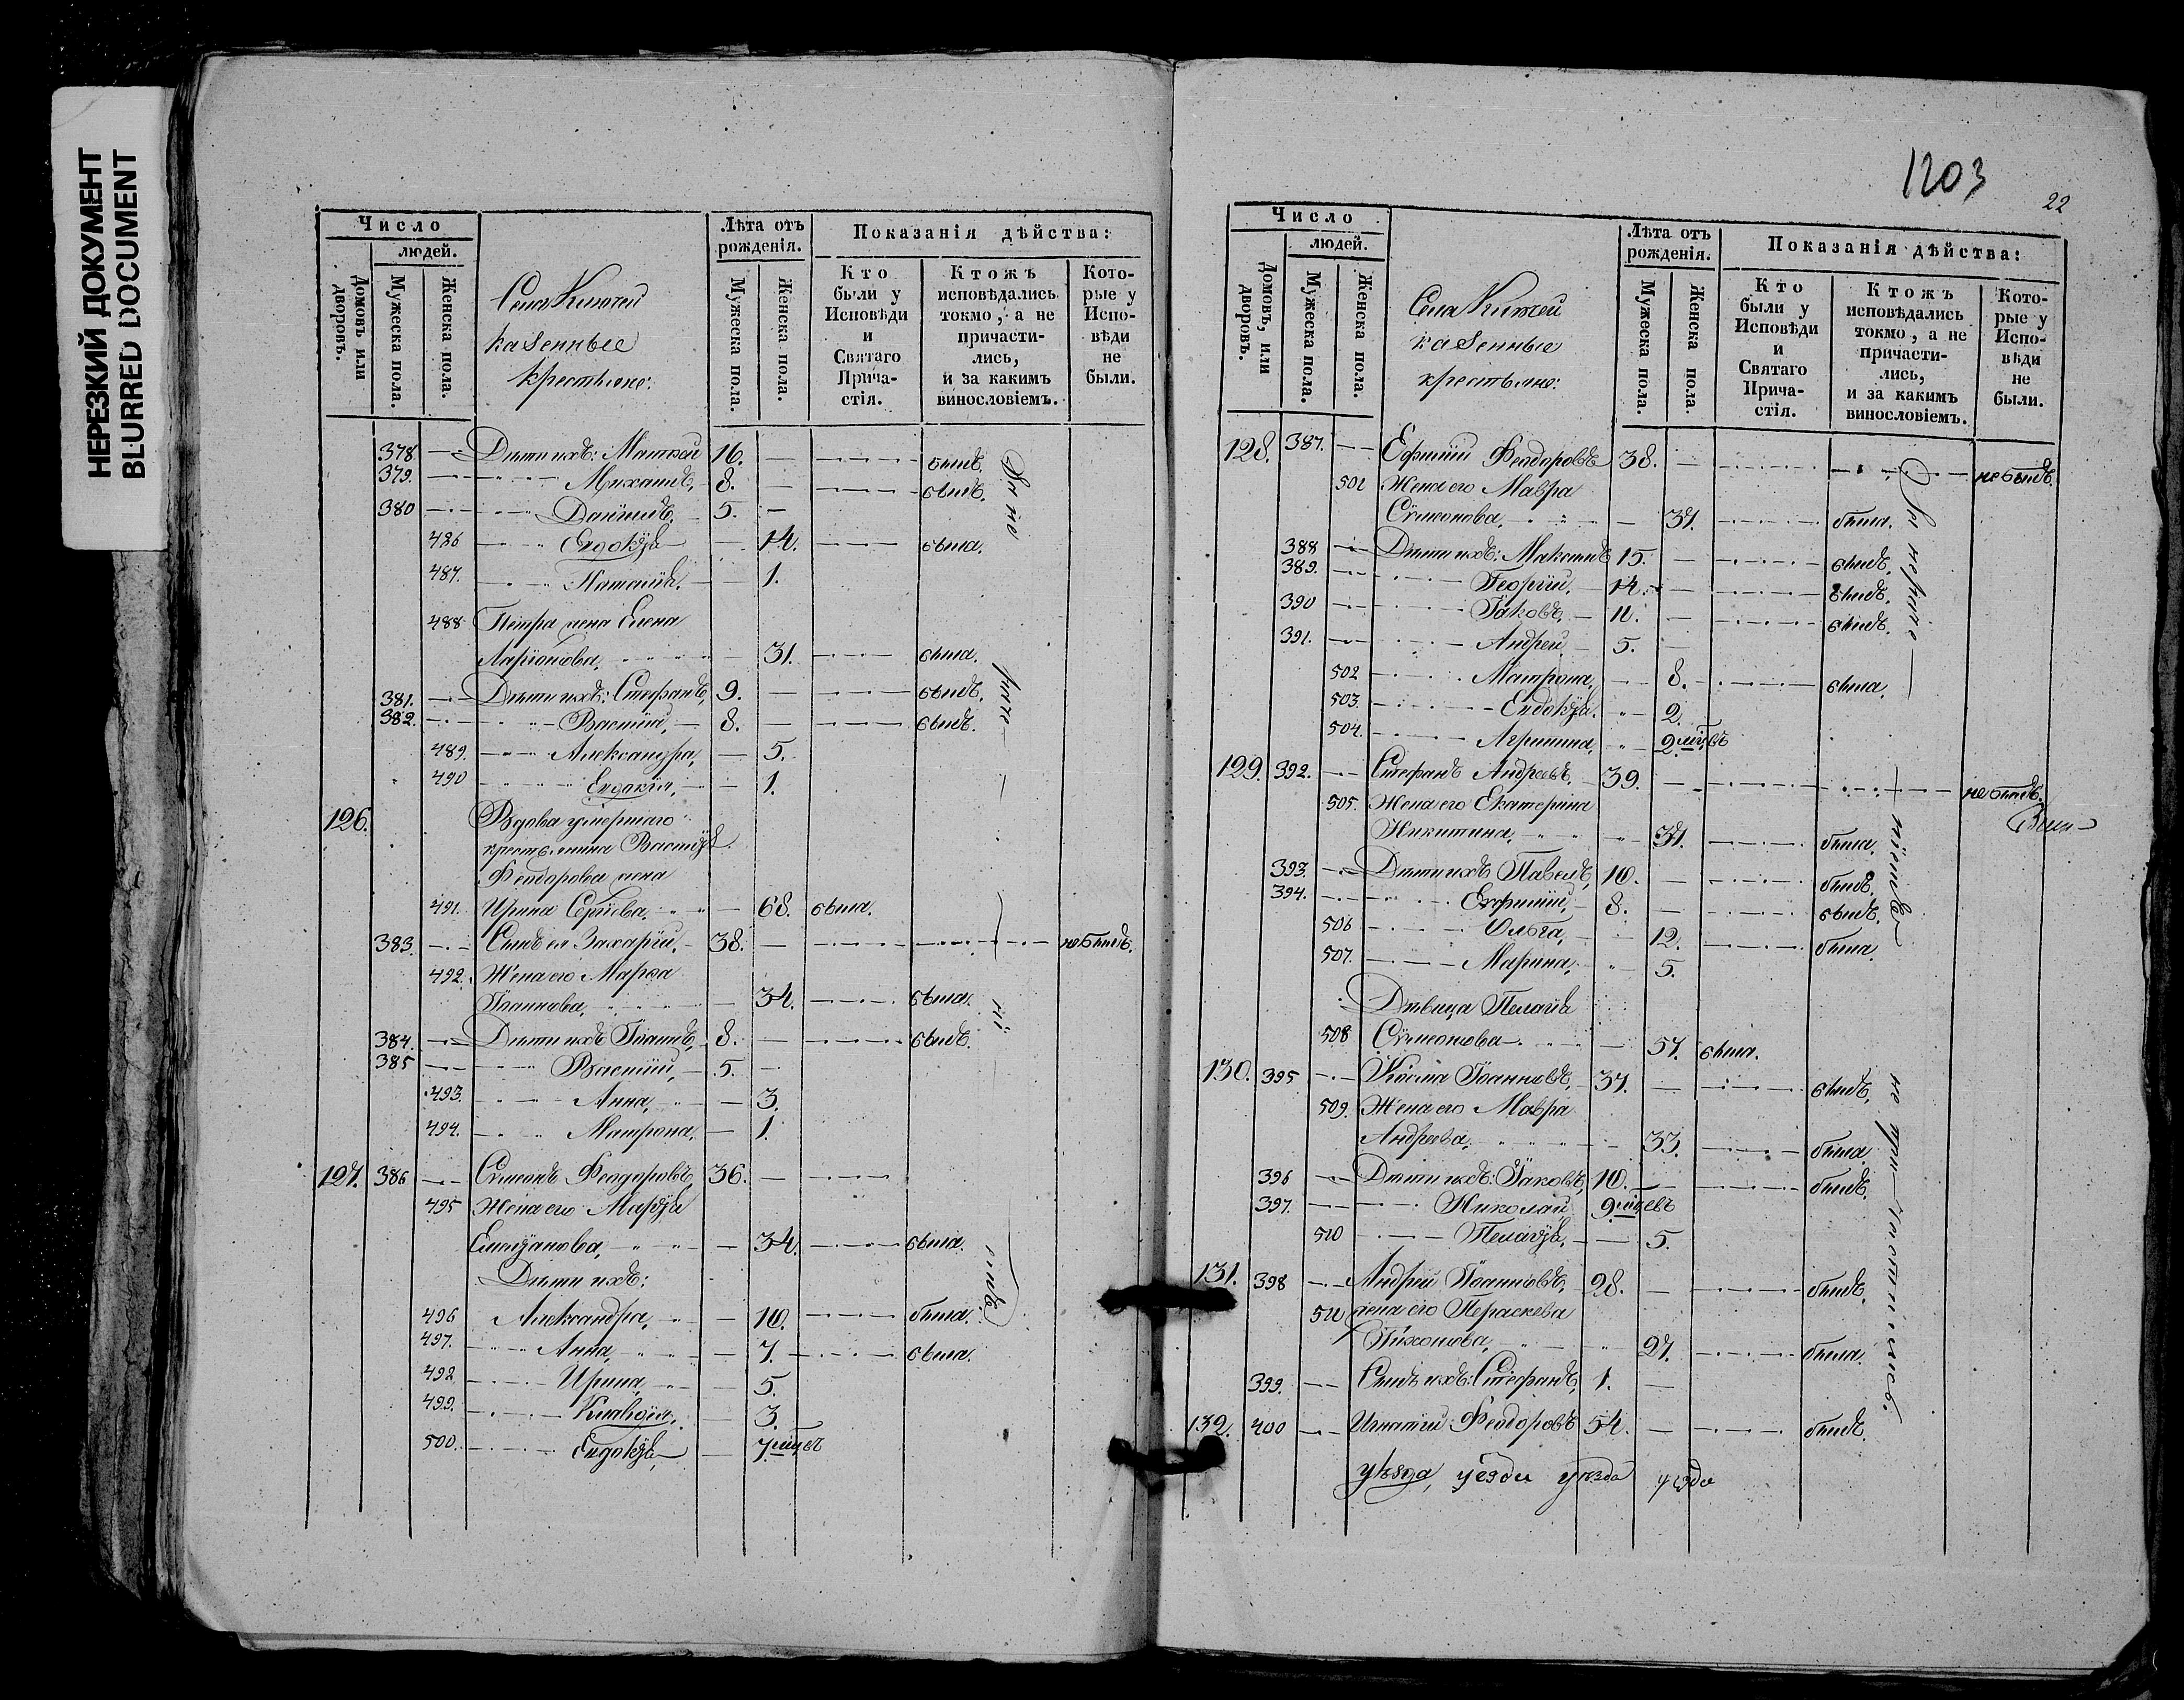 НЕРЕЗКИЙ ДОКУМЕНТ
BLURRED DOCUMENT
Число
людей.
Домовъ или дворовъ.
Мужеска пола.
Женска пола.
Села
казенные
крестьяне:
Лѣта отъ рожденія.
Мужеска пола.
Женска пола.
Показанія дѣйства:
Кто были у Исповѣди и Святаго Прича-стія.
Ктожъ исповѣдались токмо, а не причасти-лись, и за какимъ винословіемъ.
Кото-рые у Испо-вѣди не были.
378 Дѣти ихъ: Матѳей 16. былъ.
379. Михаилъ, 8. былъ.
380 Даніилъ, 5.
486 Евдокія 14. была.
487. Наталія, 1.
488 Петра жена Елена
Ларіонова, 31. была.
381. Дѣти ихъ: Стефанъ, 9. былъ.
382. Василій, 8. былъ.
489. Александра, 5.
490 Евдокія, 1.
126. Вдова умершаго
крестьянина Василія
Ѳеодорова жена
491. Ирина Сергіева, 68. была.
383. Сынъ ея Захарій, 38. не былъ.
492. Жена его Марѳа
Іоаннова, 34. была.
384. Дѣти ихъ Іоаннъ, 8. былъ.
385 Василій, 5.
493. Анна, 3.
494. Матрона, 1.
127. 386 Сѵмеонъ Ѳеодоровъ, 36.
495 Жена его Марія
34. была.
Дѣти ихъ:
496 Александра, 10. была.
497. Анна, 7. была.
492 Ирина, 5.
499. Клавдія, 3.
500. Евдокія, 7 мцевъ
1203
22
Число
людей.
Домовъ, или дворовъ.
Мужеска пола.
Женска пола.
Села
казенные
крестьяне:
Лѣта отъ рожденія.
Мужеска пола.
Женска пола.
Показанія дѣйства:
Кто были у Исповѣди и Святаго Прича-стія.
Ктожъ исповѣдались токмо, а не причасти-лись, и за какимъ винословіемъ.
Кото-рые у Испо-вѣди не были.
128. 387. Ефимій Ѳеодоровъ 38. не былъ.
501 Жена его Мавра
Сѵмеонова, 37. была.
388 Дѣти ихъ: Максимъ 15. былъ.
389. Георгій, 14. былъ.
390 Іаковъ, 10. былъ.
391. Андрей, 5.
502 Матрона, 8. была.
503. Евдокія, 2.
504. Агрипина, 2 мцевъ
129. 392. Стефанъ Андреевъ, 39. не былъ.
505. Жена его Екатерина
Никитина, 37. была.
393. Дѣти ихъ Павелъ, 10. былъ.
394. Ефимій, 8. былъ.
506 Ольга, 12. была.
507. Марина, 5.
Дѣвица Пелагія
508 Сѵмеонова 57. была.
130. 395 Косма Іоанновъ, 37. былъ.
509. Жена его Мавра
Андреева, 33. была.
396 Дѣти ихъ: Іаковъ, 10. былъ.
397. Николай 9 мцевъ
510 Пелагія, 5.
131. 398 Андрей Іоанновъ, 28. былъ.
510 жена его Параскева
Тихонова, 27. была.
399. Сынъ ихъ: Стефанъ, 1.
132. 400 Игнатій Ѳеодоровъ 54. былъ.
уѣзда, уезда уезда уезда